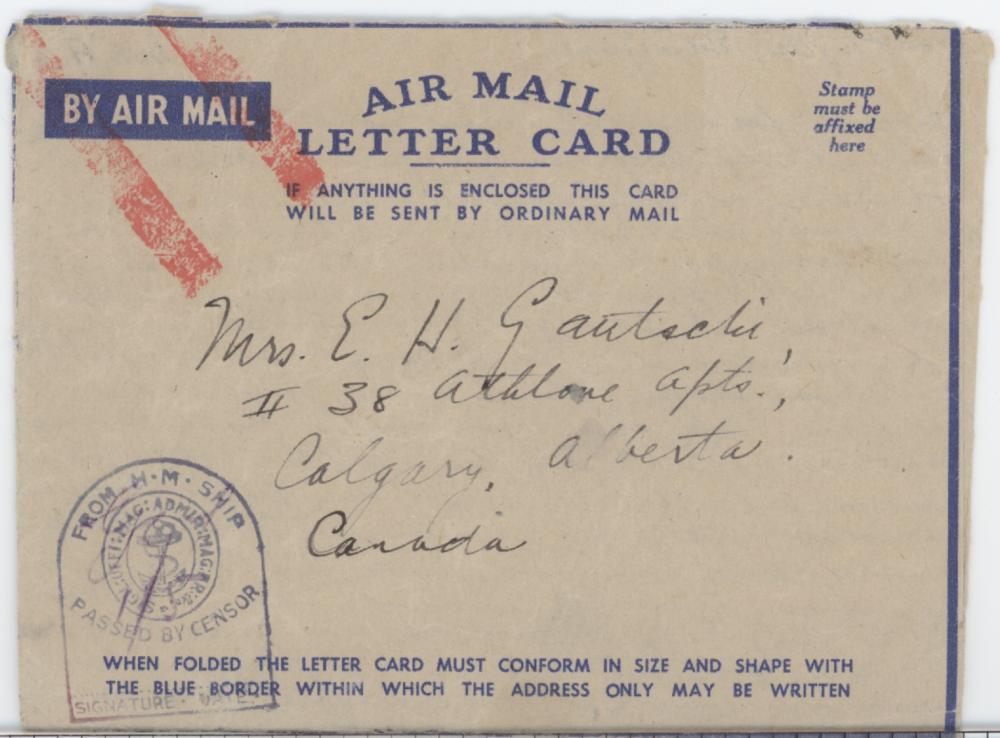 BY AIR MAIL
AIR MAIL
LETTER CARD
IF ANYTHING IS ENCLOSED THIS CARD
WILL BE SENT BY ORDINARY MAIL
Stamp
must be
affixed
here
Mrs. E. H. Gautschi,
II 38 Athlone Apts.,
Calgary, Alberta.
Canada
FROM H·M·SHIP
PASSED BY CENSOR
SIGNATURE· DATE·
WHEN FOLDED THE LETTER CARD MUST CONFORM IN SIZE AND SHAPE WITH
THE BLUE BORDER WITHIN WHICH THE ADDRESS ONLY MAY BE WRITTEN